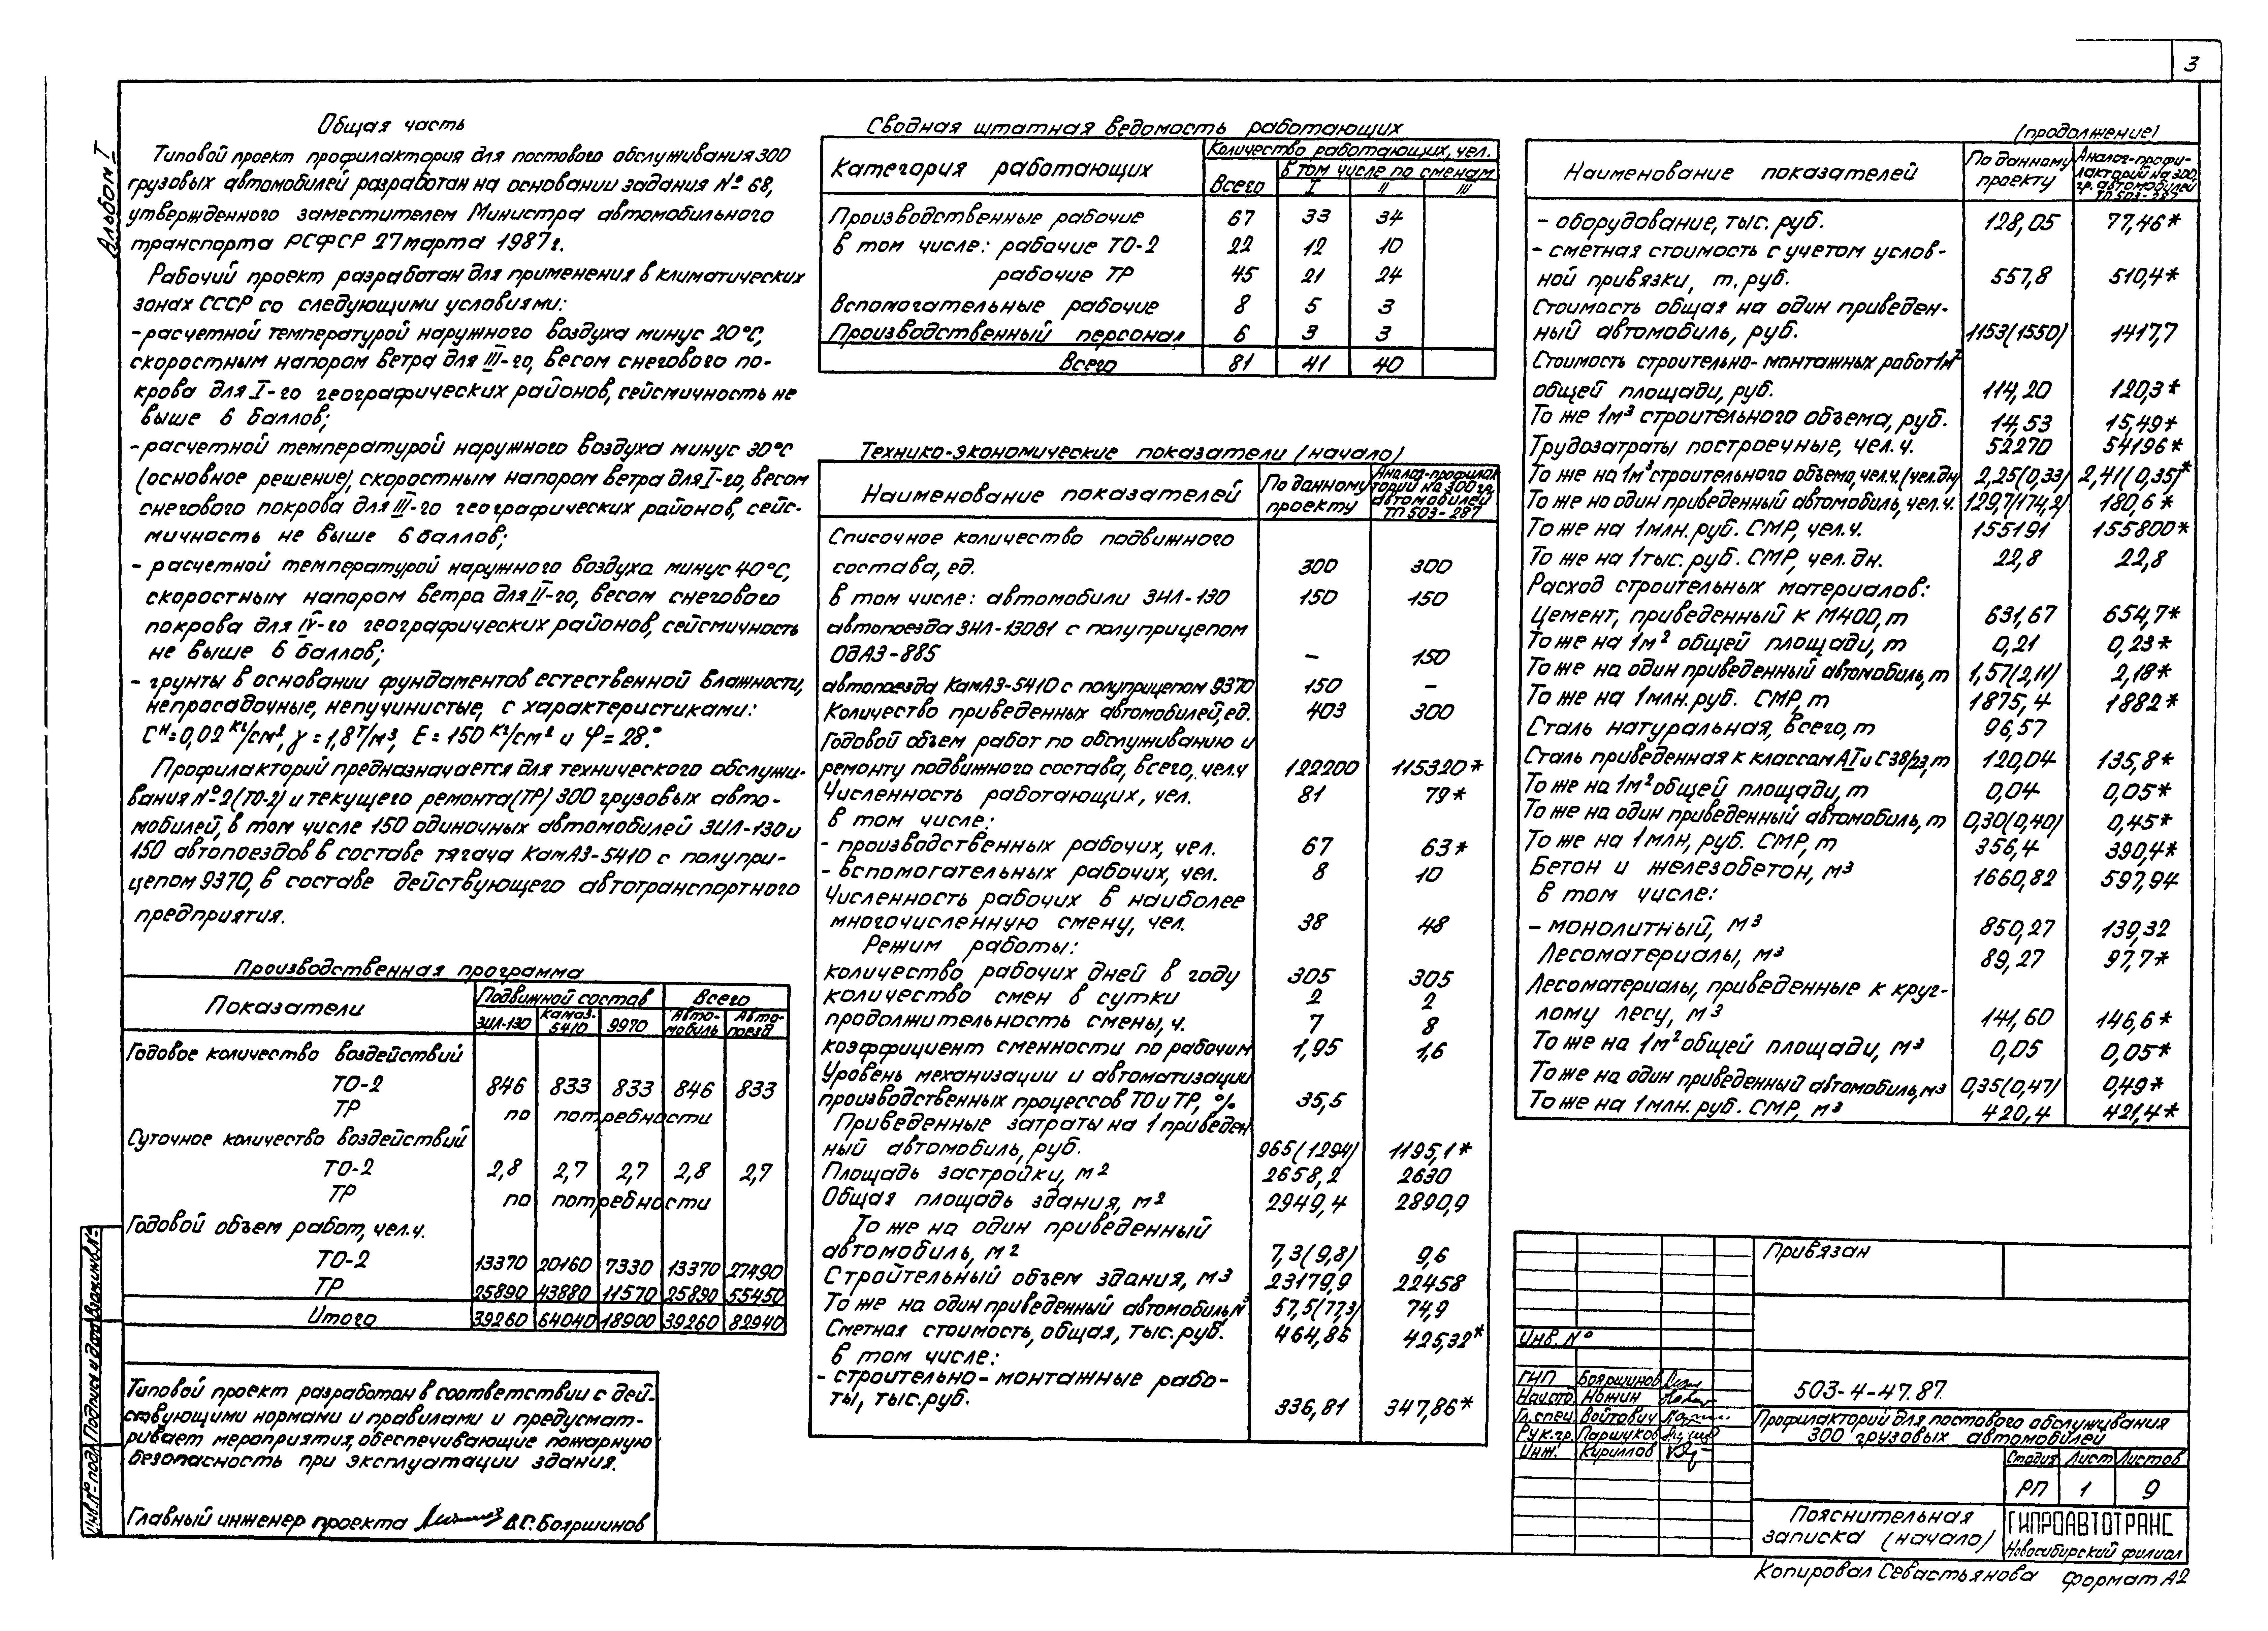 3
Альбом I
Общая часть
Типовой проект профилактория для постового обслуживания 300
грузовых автомобилей разработан на основании задания № 68,
утвержденного заместителем Министра автомобильного
транспорта РСФСР 27 марта 1987г.
Рабочий проект разработан для применения в климатических
зонах СССР со следующими условиями:
- расчетной температурой наружного воздуха минус 20°С,
скоростным напором ветра для III-го, весом снегового по-
крова для I-го географических районов, сейсмичность не
выше 6 баллов;
- расчетной температурой наружного воздуха минус 30°С
(основное решение), скоростным напором ветра для I-го, весом
снегового покрова для III-го географических районов, сейс-
мичность не выше 6 баллов;
- расчетной температурой наружного воздуха минус 40°С,
скоростным напором ветра для II-го, весом снегового
покрова для IV-го географических районов, сейсмичность
не выше 6 баллов;
- грунты в основании фундаментов естественной влажности,
непросадочные, непучинистые, с характеристиками:
Cᴴ=0,02 кг/см², γ=1,8т/м³, E=150 кг/см² и φ=28°.
Профилакторий предназначается для технического обслужи-
вания №2(ТО-2) и текущего ремонта(ТР) 300 грузовых авто-
мобилей, в том числе 150 одиночных автомобилей ЗИЛ-130 и
150 автопоездов в составе тягача КамАЗ-5410 с полупри-
цепом 9370, в составе действующего автотранспортного
предприятия.
Производственная программа
Показатели Подвижной состав Всего
ЗИЛ-130 КамАЗ-5410 9970 Авто-мобиль Авто-поезд
Годовое количество воздействий
ТО-2 846 833 833 846 833
ТР по потребности
Суточное количество воздействий
ТО-2 2,8 2,7 2,7 2,8 2,7
ТР по потребности
Годовой объем работ, чел.ч.
ТО-2 13370 20160 7330 13370 27490
ТР 25890 43880 11570 25890 55450
Итого 39260 64040 18900 39260 82940
Типовой проект разработан в соответствии с дей-
ствующими нормами и правилами и предусмат-
ривает мероприятия, обеспечивающие пожарную
безопасность при эксплуатации здания.
Главный инженер проекта В.С.Бояршинов
Инв.№ подл. Подпись и дата Взам.инв.№
Сводная штатная ведомость работающих
Категория работающих Количество работающих, чел.
Всего в том числе по сменам
I II III
Производственные рабочие 67 33 34
в том числе: рабочие ТО-2 22 12 10
рабочие ТР 45 21 24
Вспомогательные рабочие 8 5 3
Производственный персонал 6 3 3
Всего 81 41 40
Технико-экономические показатели (начало)
Наименование показателей По данному проекту Аналог-профилакторий на 300 гр. автомобилей ТП 503-287
Списочное количество подвижного
состава, ед. 300 300
в том числе: автомобили ЗИЛ-130 150 150
автопоезда ЗИЛ-130В1 с полуприцепом
ОдАЗ-885 – 150
автопоезда КамАЗ-5410 с полуприцепом 9370 150 –
Количество приведенных автомобилей, ед. 403 300
Годовой объем работ по обслуживанию и
ремонту подвижного состава, всего, чел.ч 122200 115320*
Численность работающих, чел. 81 79*
в том числе:
- производственных рабочих, чел. 67 63*
- вспомогательных рабочих, чел. 8 10
Численность рабочих в наиболее
многочисленную смену, чел. 38 48
Режим работы:
количество рабочих дней в году 305 305
количество смен в сутки 2 2
продолжительность смены, ч. 7 8
коэффициент сменности по рабочим 1,95 1,6
Уровень механизации и автоматизации
производственных процессов ТО и ТР, % 35,5
Приведенные затраты на 1 приведен
ный автомобиль, руб. 965(1294) 1195,1*
Площадь застройки, м² 2658,2 2630
Общая площадь здания, м² 2949,4 2890,9
То же на один приведенный
автомобиль, м² 7,3(9,8) 9,6
Строительный объем здания, м³ 23179,9 22458
То же на один приведенный автомобиль, м³ 57,5(77,3) 74,9
Сметная стоимость, общая, тыс.руб. 464,86 425,32*
в том числе:
- строительно-монтажные рабо-
ты, тыс.руб. 336,81 347,86*
(продолжение)
Наименование показателей По данному проекту Аналог-профилакторий на 300 гр. автомобилей ТП 503-287
- оборудование, тыс. руб. 128,05 77,46*
- сметная стоимость с учетом услов-
ной привязки, т. руб. 557,8 510,4*
Стоимость общая на один приведен-
ный автомобиль, руб. 1153(1550) 1417,7
Стоимость строительно-монтажных работ 1м²
общей площади, руб. 114,20 120,3*
То же 1м³ строительного объема, руб. 14,53 15,49*
Трудозатраты построечные, чел.ч. 52270 54196*
То же на 1м³ строительного объема, чел.ч.(чел.дн) 2,25(0,33) 2,41(0,35)*
То же на один приведенный автомобиль, чел.ч. 129,7(174,2) 180,6*
То же на 1млн.руб. СМР, чел.ч. 155191 155800*
То же на 1тыс.руб. СМР, чел.дн. 22,8 22,8
Расход строительных материалов:
Цемент, приведенный к М400, т 631,67 654,7*
То же на 1м² общей площади, т 0,21 0,23*
То же на один приведенный автомобиль, т 1,57(2,11) 2,18*
То же на 1млн.руб. СМР, т 1875,4 1882*
Сталь натуральная, всего, т 96,57
Сталь приведенная к классам АI и С38/23, т 120,04 135,8*
То же на 1м² общей площади, т 0,04 0,05*
То же на один приведенный автомобиль, т 0,30(0,40) 0,45*
То же на 1млн, руб. СМР, т 356,4 390,4*
Бетон и железобетон, м³ 1660,82 597,94
в том числе:
- монолитный, м³ 850,27 139,32
Лесоматериалы, м³ 89,27 97,7*
Лесоматериалы, приведенные к круг-
лому лесу, м³ 141,60 146,6*
То же на 1м² общей площади, м³ 0,05 0,05*
То же на один приведенный автомобиль, м³ 0,35(0,47) 0,49*
То же на 1млн.руб. СМР, м³ 420,4 421,4*
Привязан
Инв.№
ГИП Бояршинов
Нач.отд. Ножин
Гл.спец. Войтович
Рук.гр. Паршуков
Инж. Кириллов
503-4-47.87.
Профилакторий для постового обслуживания
300 грузовых автомобилей
Стадия Лист Листов
РП 1 9
Пояснительная
записка (начало)
ГИПРОАВТОТРАНС
Новосибирский филиал
Копировал Севастьянова Формат А2